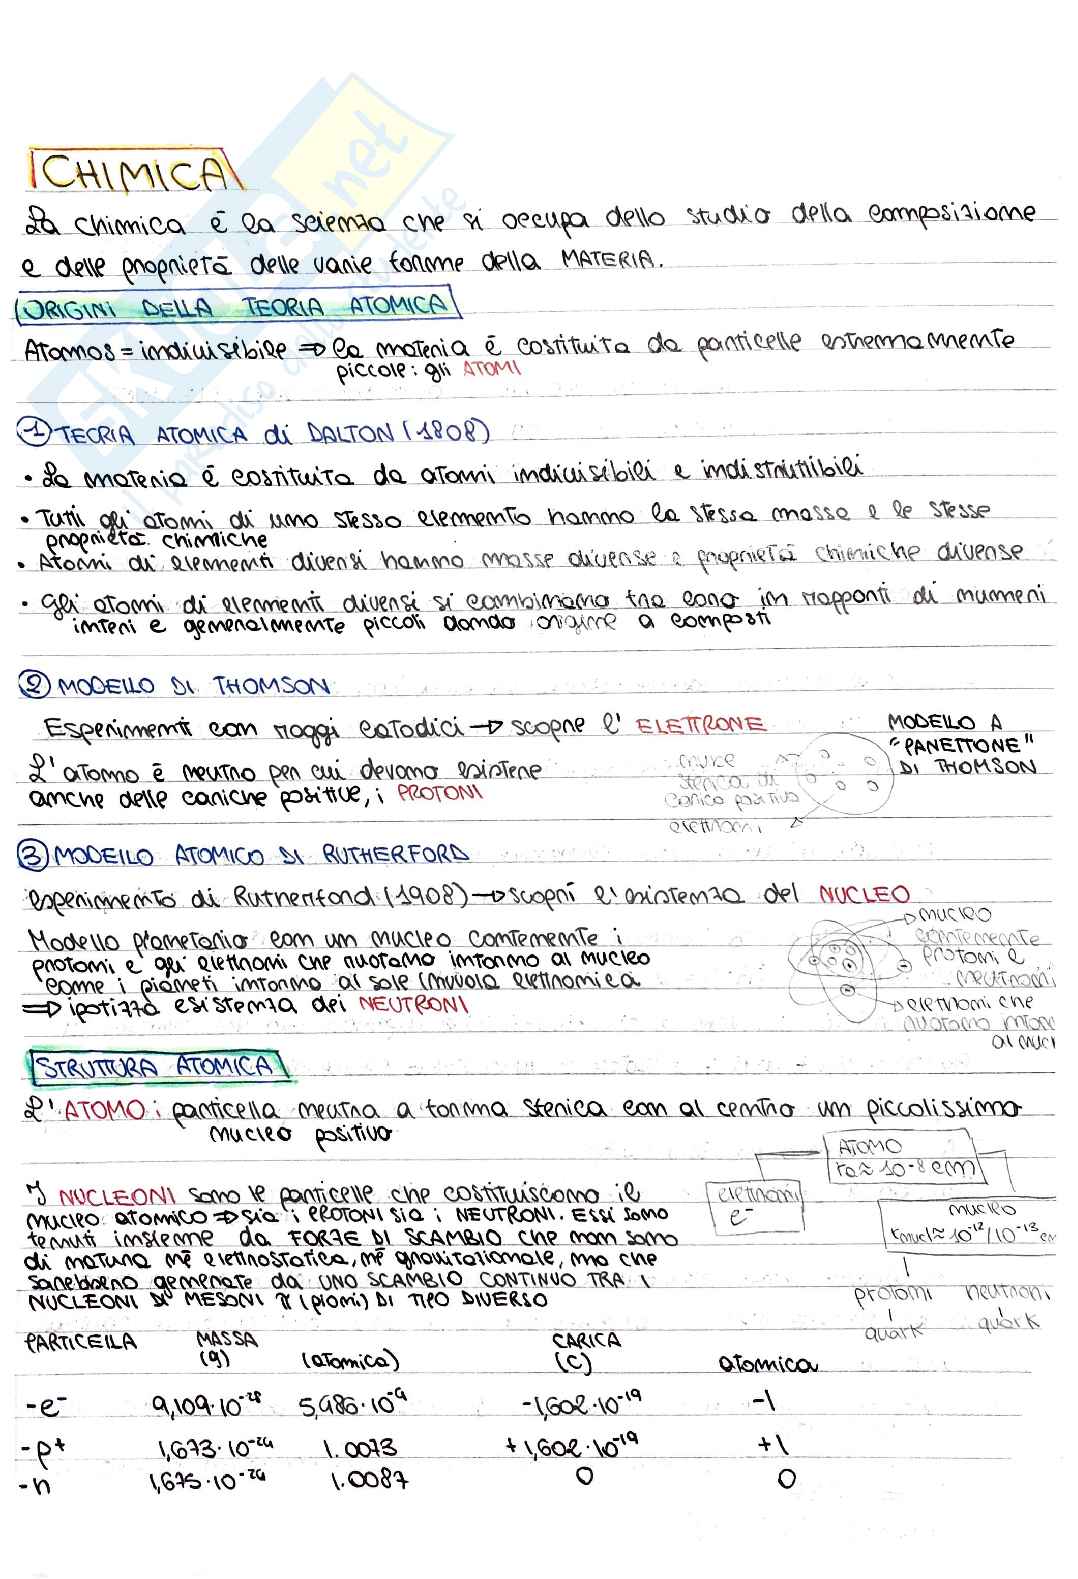 CHIMICA
La chimica è la scienza che si occupa dello studio della composizione
e delle proprietà delle varie forme della MATERIA.
ORIGINI DELLA TEORIA ATOMICA
Atomos = indivisibile => la materia è costituita da particelle estremamente
piccole: gli ATOMI
1 TEORIA ATOMICA di DALTON (1808)
• La materia è costituita da atomi indivisibili e indistruttibili
• Tutti gli atomi di uno stesso elemento hanno la stessa massa e le stesse
proprietà chimiche
• Atomi di elementi diversi hanno masse diverse e proprietà chimiche diverse
• Gli atomi di elementi diversi si combinano tra loro in rapporti di numeri
interi e generalmente piccoli dando origine a composti
2 MODELLO DI THOMSON
Esperimenti con raggi catodici → scopre l' ELETTRONE
L'atomo è neutro per cui devono esistere
anche delle cariche positive, i PROTONI
MODELLO A
"PANETTONE"
DI THOMSON
nube
sferica di
carica positiva
elettroni
3 MODELLO ATOMICO DI RUTHERFORD
esperimento di Rutherford (1908) → scoprì l'esistenza del NUCLEO
Modello planetario con un nucleo contenente i
protoni e gli elettroni che ruotano intorno al nucleo
come i pianeti intorno al sole (nuvola elettronica
=> ipotizzò esistenza dei NEUTRONI
nucleo
contenente
protoni e
neutroni
elettroni che
ruotano intor
al nucl
STRUTTURA ATOMICA
L'ATOMO: particella neutra a forma sferica con al centro un piccolissimo
nucleo positivo
I NUCLEONI sono le particelle che costituiscono il
nucleo atomico => sia i PROTONI sia i NEUTRONI. Essi sono
tenuti insieme da FORZE DI SCAMBIO che non sono
di natura nè elettrostatica, nè gravitazionale, ma che
sarebbero generate da UNO SCAMBIO CONTINUO TRA I
NUCLEONI DI MESONI π (pioni) DI TIPO DIVERSO
ATOMO
ra ≈ 10⁻⁸ cm
elettroni
e⁻
nucleo
rnucl ≈ 10⁻¹²/10⁻¹³ cm
protoni neutroni
quark quark
PARTICELLA MASSA (g) (atomica) CARICA (C) atomica
-e⁻ 9,109·10⁻²⁸ 5,486·10⁻⁴ -1,602·10⁻¹⁹ -1
-p⁺ 1,673·10⁻²⁴ 1.0073 +1,602·10⁻¹⁹ +1
-n 1,675·10⁻²⁴ 1.0087 0 0
SKUOLA.net
il paradiso dello studente